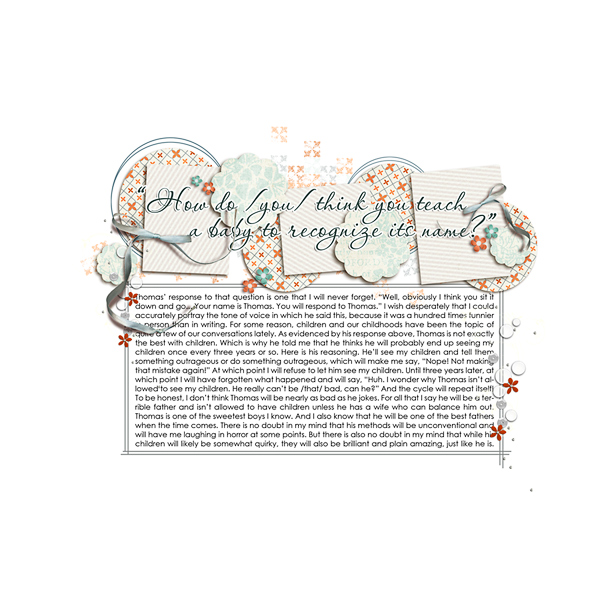 "How do /you/ think you teach
a baby to recognize its name?"
Thomas' response to that question is one that I will never forget. "Well, obviously I think you sit it
down and go, 'Your name is Thomas. You will respond to Thomas." I wish desperately that I could
accurately portray the tone of voice in which he said this, because it was a hundred times funnier
in person than in writing. For some reason, children and our childhoods have been the topic of
quite a few of our conversations lately. As evidenced by his response above, Thomas is not exactly
the best with children. Which is why he told me that he thinks he will probably end up seeing my
children once every three years or so. Here is his reasoning. He'll see my children and tell them
something outrageous or do something outrageous, which will make me say, "Nope! Not making
that mistake again!" At which point I will refuse to let him see my children. Until three years later, at
which point I will have forgotten what happened and will say, "Huh. I wonder why Thomas isn't al-
lowed to see my children. He really can't be /that/ bad, can he?" And the cycle will repeat itself.
To be honest, I don't think Thomas will be nearly as bad as he jokes. For all that I say he will be a ter-
rible father and isn't allowed to have children unless he has a wife who can balance him out,
Thomas is one of the sweetest boys I know. And I also know that he will be one of the best fathers
when the time comes. There is no doubt in my mind that his methods will be unconventional and
will have me laughing in horror at some points. But there is also no doubt in my mind that while his
children will likely be somewhat quirky, they will also be brilliant and plain amazing, just like he is.